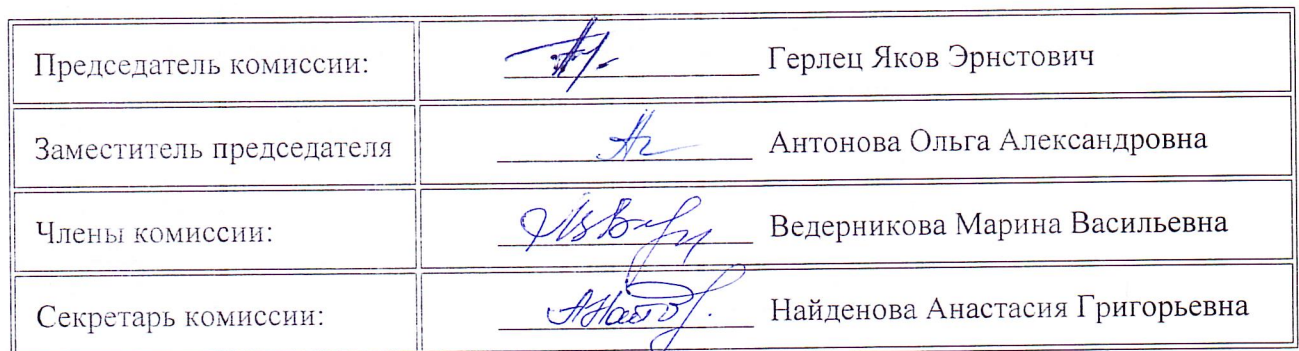 Председатель комиссии: Герлец Яков Эрнстович
Заместитель председателя Антонова Ольга Александровна
Члены комиссии: Ведерникова Марина Васильевна
Секретарь комиссии: Найденова Анастасия Григорьевна